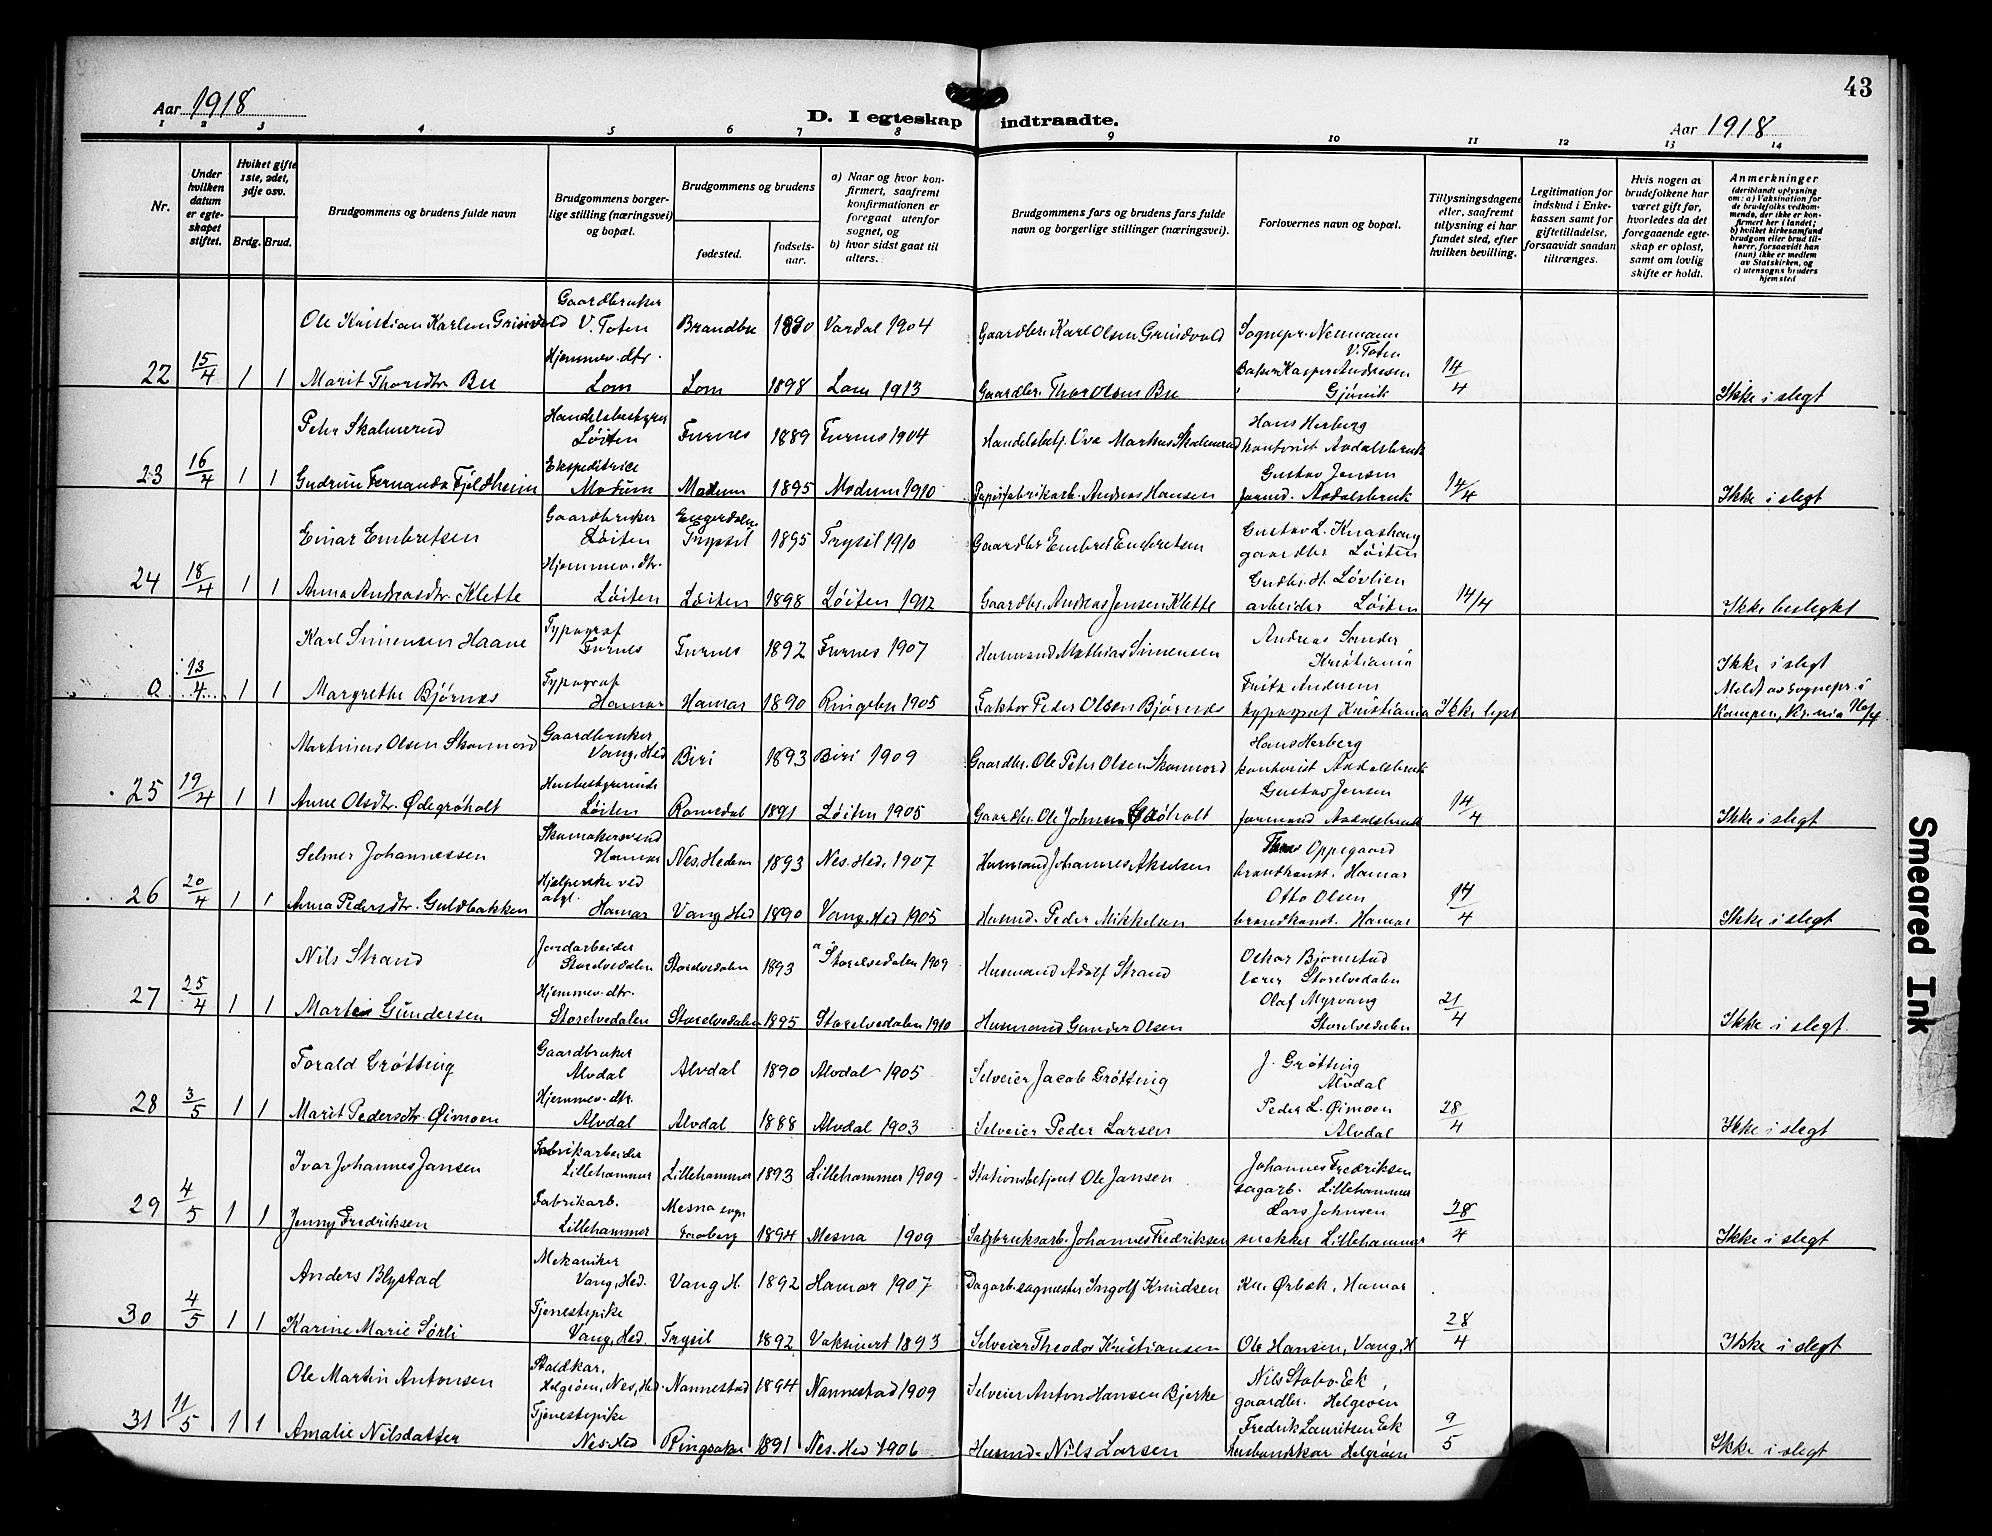 43
Aar 1918
D. I egteskap indtraadte.
Aar 1918
1 2 3 4 5 6 7 8 9 10 11 12 13 14
Nr.
Under hvilken datum er egteskapet stiftet.
Hvilket gifte 1ste, 2det, 3dje osv.
Brdg. Brud.
Brudgommens og brudens fulde navn
Brudgommens borgerlige stilling (næringsvei) og bopæl.
Brudgommens og brudens
fødested.
fødselsaar.
a) Naar og hvor konfirmert, saafremt konfirmationen er foregaat utenfor sognet, og
b) hvor sidst gaat til alters.
Brudgommens fars og brudens fars fulde navn og borgerlige stillinger (næringsvei).
Forlovernes navn og bopæl.
Tillysningsdagene eller, saafremt tillysning ei har fundet sted, efter hvilken bevilling.
Legitimation for indskud i Enkekassen samt for giftetilladelse, forsaavidt saadan tiltrænges.
Hvis nogen av brudefolkene har været gift før, hvorledes da det foregaaende egteskap er opløst, samt om lovlig skifte er holdt.
Anmerkninger
(deriblandt oplysning om: a) Vaksination for de brudefolks vedkommende, der ikke er konfirmert her i landet; b) hvilket kirkesamfund brudgom eller brud tilhører, forsaavidt han (hun) ikke er medlem av Statskirken, og c) utensogns bruders hjemsted
Ole Kristian Karlsen Gaardbruker V. Toten 1890 Vardal 1904 Gaardbr. Karl Olsen Sognepr. Neumann V. Toten
22 15/4 1 1 Marit Thorsdtr. Bu Hjemmev. dtr. Lom Lom 1898 Lom 1913 Gaardbr. Thor Olsen Bu Kasper Andresen Gjøvik 14/4 Ikke i slegt
Peter Skalmerud Handelsbestyrer Løiten Furnes 1889 Furnes 1904 Handelsbetj. Ove Markus Skalmerud Hans Herberg kontorist Aadalsbruk
23 16/4 1 1 Gudrun Fernanda Fjeldheim Ekspeditrice Modum Modum 1895 Modum 1910 Papirfabrikarb. Andreas Hansen Gustav Jensen formd. Aadalsbruk 14/4 Ikke i slegt
Einar Embretsen Gaardbruker Løiten Engerdalen Trysil 1895 Trysil 1910 Gaardbr Embret Embretsen Gustav L. gaardbr Løiten
24 18/4 1 1 Anna Andreasdtr. Klette Hjemmev. dtr. Løiten Løiten 1898 Løiten 1912 Gaardbr. Andreas Jensen Klette Gudbr. H. Løvlien arbeider Løiten 14/4 Ikke beslegtet
Karl Simensen Haane Typograf Furnes Furnes 1892 Furnes 1907 Husmand Mathias Simensen Andreas Sander Kristiania
0 13/4 1 1 Margrethe Bjørnes Typograf Hamar Hamar 1890 Ringebu 1905 Faktor Peder Olsen Bjørnes Fritz Andresen typograf Kristiania Ikke lyst Ikke i slegt Meldt av sognepr. i Kampen, Kr.nia
Martinus Olsen Gaardbruker Vang, Hed Biri 1893 Biri 1909 Gaardbr. Ole Peter Olsen Hans Herberg kontorist Aadalsbruk
25 19/4 1 1 Anne Olsdtr. Ødegrøholt Husbestyrerinde Løiten Romedal 1891 Løiten 1905 Gaardbr. Ole Johnsen Gustav Jensen formand Aadalsbruk 14/4 Ikke i slegt
Selmer Johannessen Skomakersvend Hamar Nes. Hedem 1893 Nes. Hed. 1907 Husmand Johannes Akselsen Oppegaard brandkonst. Hamar
26 20/4 1 1 Anna Pedersdtr. Guldbakken Hjelperske ved Hamar Vang Hed 1890 Vang, Hed 1905 Husmd. Peder Mikkelsen Otto Olsen brandkonst. Hamar 14/4 Ikke i slegt
Nils Strand Jordarbeider Storelvedalen Storelvedalen 1893 Storelvedalen 1909 Husmand Adolf Strand Oskar Bjørnstad lærer Storelvedalen
27 25/4 1 1 Gundersen Hjemmev. dtr. Storelvedalen Storelvedalen 1895 Storelvedalen 1910 Husmand Gunder Olsen Olaf Myrvang Storelvedalen 21/4 Ikke i slegt.
Torald Grøtting Gaardbruker Alvdal Alvdal 1890 Alvdal 1905 Selveier Jacob Grøtting J. Grøtting Alvdal
28 3/5 1 1 Marit Pedersdtr. Øimoen Hjemmev. dtr. Alvdal Alvdal 1888 Alvdal 1903 Selveier Peder Larsen Peder L. Øimoen Alvdal 28/4 Ikke i slegt
Ivar Johannes Jansen Fabrikarbeider Lillehammer Lillehammer 1893 Lillehammer 1909 Stationsbetjent Ole Jansen Johannes Fredriksen sagarb. Lillehammer
29 4/5 1 1 Jenny Fredriksen Fabrikarb. Lillehammer Mesna sogn Faaberg 1894 Mesna 1909 Johannes Fredriksen Lars Johnsen snekker Lillehammer 28/4 Ikke i slegt
Anders Blystad Mekaniker Vang, Hed. Vang H. 1892 Hamar 1907 Ingolf Knudsen Kr. Ørbæk, Hamar
30 4/5 1 1 Karine Marie Sørli Tjenestepike Vang, Hed. Trysil 1892 Vaksinert 1893 Selveier Theodor Kristiansen Ole Hansen, Vang, H 28/4 Ikke i slegt
Ole Martin Antonsen Staldkar, Helgøen, Nes, Hed. Nannestad 1894 Nannestad 1909 Selveier Anton Hansen Bjerke Nils Stabo Ek gaardbr. Helgøen
31 11/5 1 1 Amalie Nilsdatter Tjenestepike Nes. Hed Ringsaker 1891 Nes. Hed 1906 Husmd. Nils Larsen Fredrik Lauritsen Ek husbondskar Helgøen 9/5 Ikke i slegt
Smeared Ink